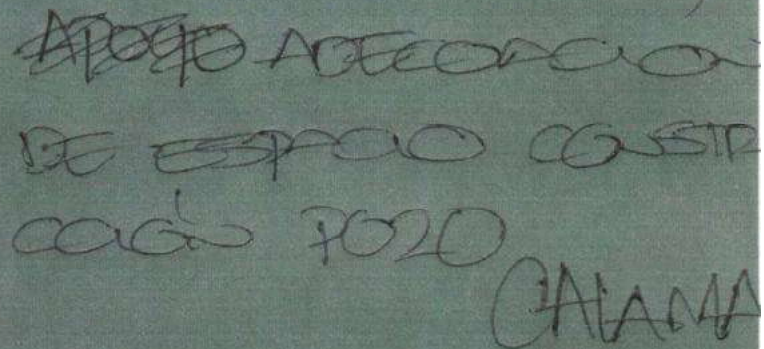 APOYO ADECUACIÓN
DE ESPACIO CONSTR
CCIÓN POZO
CALAMA